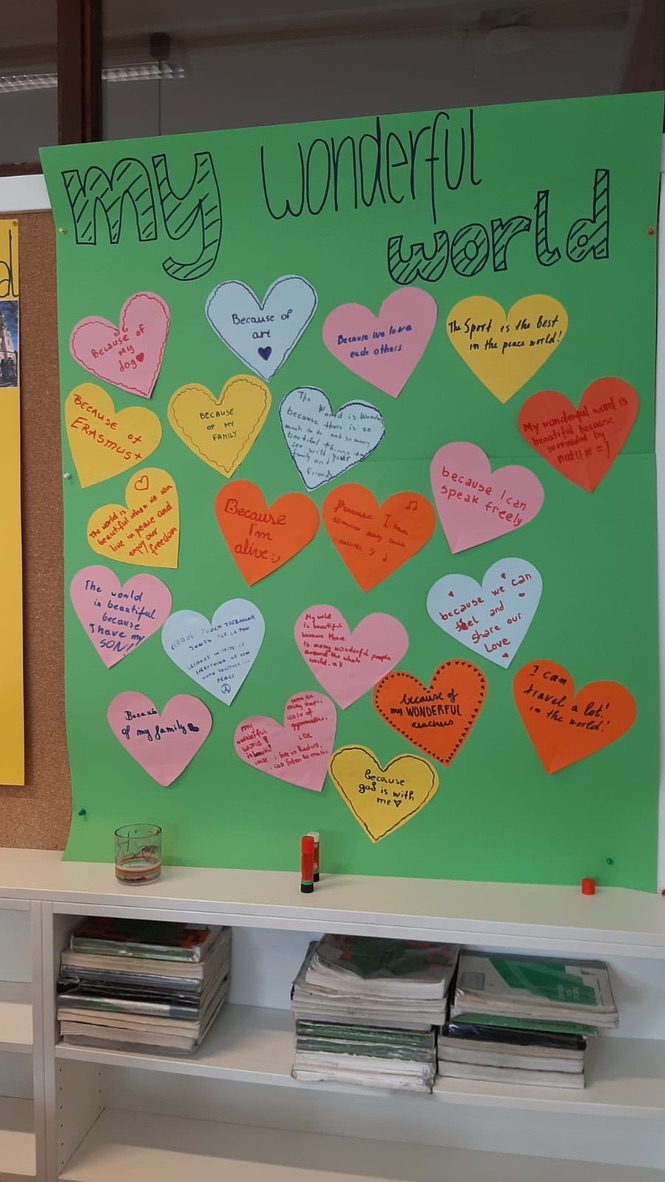 my wonderful
world
Because of
My
dog
Because of
art
Because we love
each others
The Sport is the Best
in the peace world!
BECAUSE OF
ERASMUS+
BECAUSE
OF MY
FAMILY
The World is Wonder
because there is so
much to do and so many
beautiful things to
see with your
family and
friends
My wonderful word is
beautiful because
surrounded by
nature =)
The world is
beautiful when we can
live in peace and
enjoy our
freedom
Because
I'm
alive :)
Because I can
because I can
speak freely
The world
is beautiful
because
I have my
SON!
PEACE
My world
is beautiful
because there
is many wonderful people
around the whole
world. =)
because we can
feel and
share our
Love
Because
of my family
my
wonderful
world
is
I can listen to music
LOL
because of
my WONDERFUL
teachers
I can
travel a lot!
in the world!
Because
god is with
me